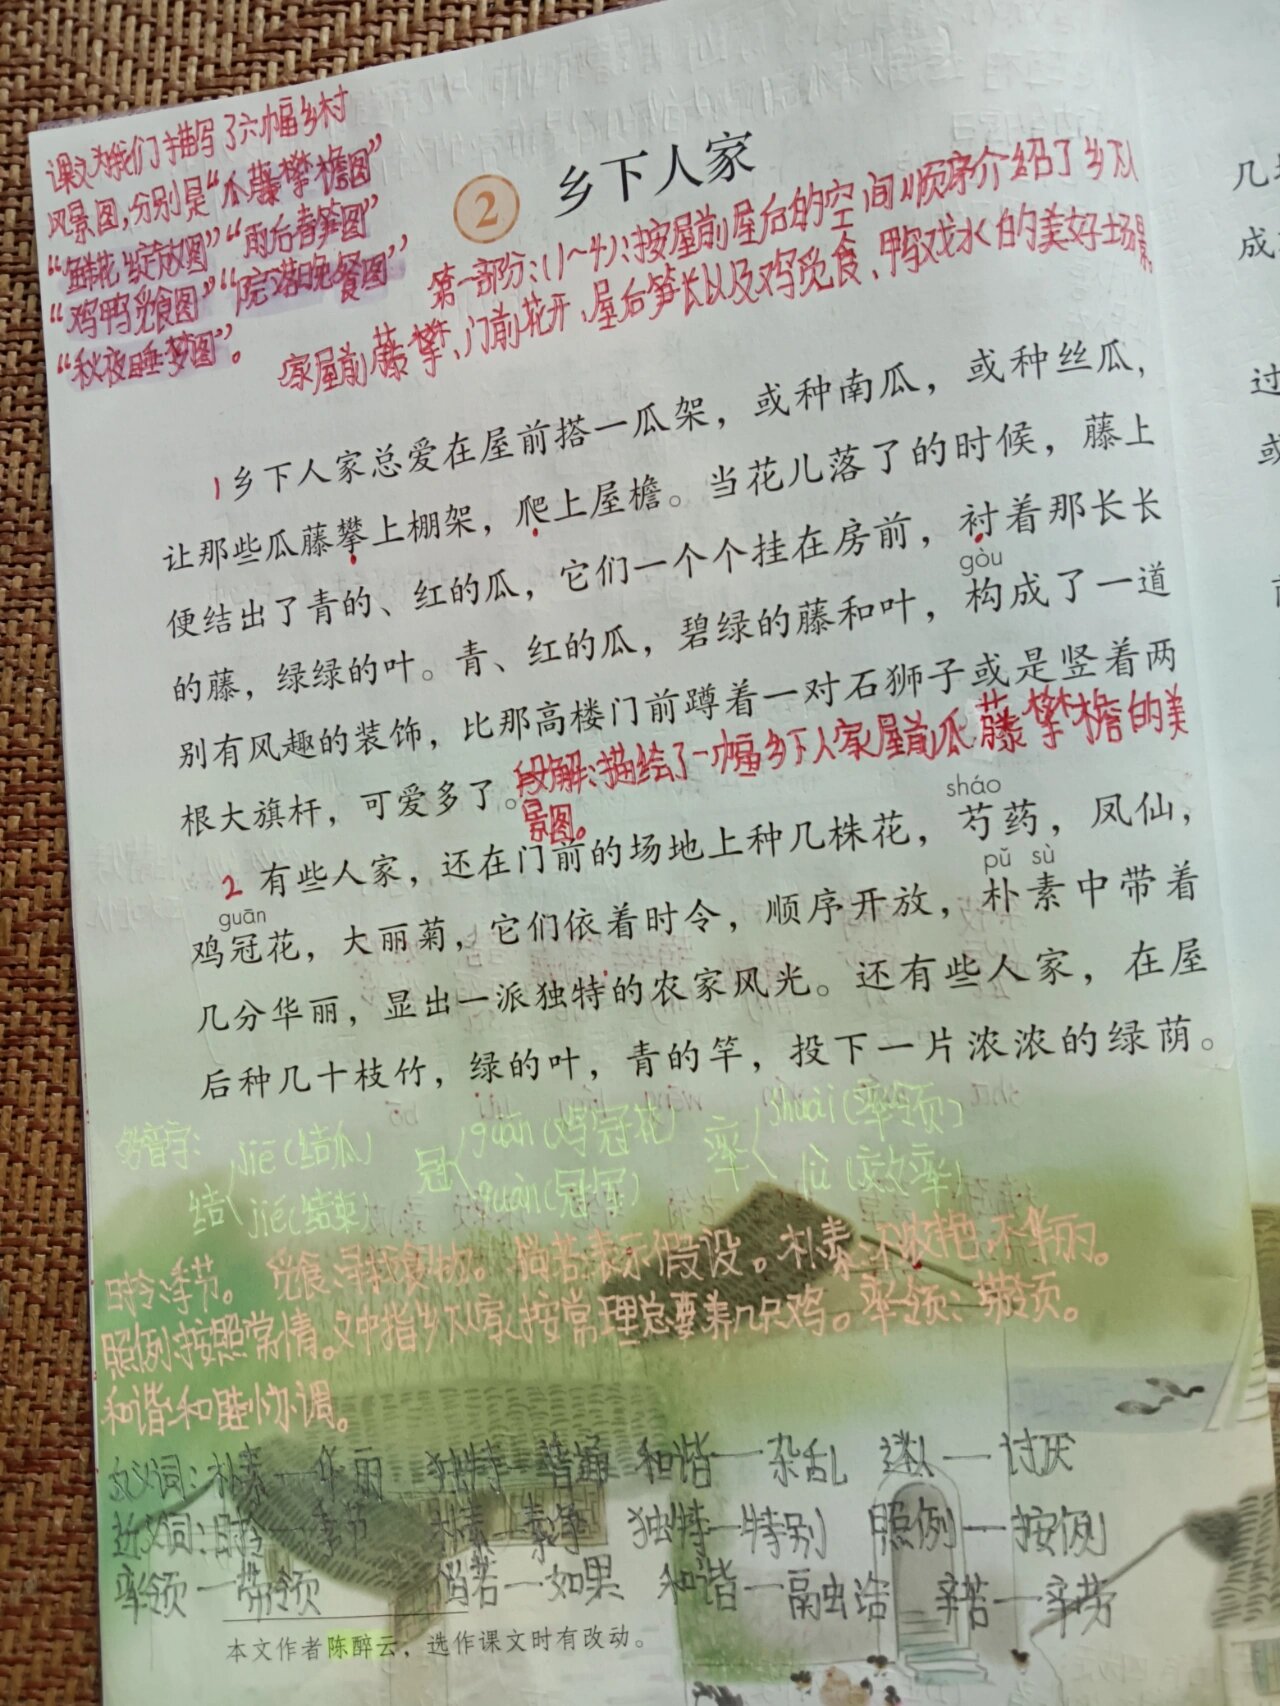 课文为我们描写了六幅乡村
风景图,分别是“瓜藤攀檐图”
“鲜花绽放图”“雨后春笋图”
“鸡鸭觅食图”“院落晚餐图”
“秋夜睡梦图”。
2 乡下人家
第一部分:(1~4):按屋前屋后的空间顺序介绍了乡下人
家屋前藤攀、门前花开、屋后笋长以及鸡觅食、鸭戏水的美好场景。
1乡下人家总爱在屋前搭一瓜架，或种南瓜，或种丝瓜，
让那些瓜藤攀上棚架，爬上屋檐。当花儿落了的时候，藤上
便结出了青的、红的瓜，它们一个个挂在房前，衬着那长长
gòu
的藤，绿绿的叶。青、红的瓜，碧绿的藤和叶，构成了一道
别有风趣的装饰，比那高楼门前蹲着一对石狮子或是竖着两
根大旗杆，可爱多了。段解:描绘了一幅乡下人家屋前瓜藤攀檐的美
景图。
sháo
2 有些人家，还在门前的场地上种几株花，芍药，凤仙，
guān pǔ sù
鸡冠花，大丽菊，它们依着时令，顺序开放，朴素中带着
几分华丽，显出一派独特的农家风光。还有些人家，在屋
后种几十枝竹，绿的叶，青的竿，投下一片浓浓的绿荫。
多音字: jiē(结瓜) guān(鸡冠花) shuài(率领)
结 冠 率
jié(结束) guàn(冠军) lǜ(效率)
时令:季节。 觅食:寻找食物。 倘若:表示假设。朴素:不浓艳,不华丽。
照例:按照常情。文中指乡下人家按常理总要养几只鸡。率领:带领。
和谐:和睦协调。
反义词:朴素—华丽 独特—普通 和谐—杂乱 —讨厌
近义词:时令—季节 朴素—素净 独特—特别 照例—按例
率领—带领 倘若—如果 和谐—融洽 辛苦—辛劳
本文作者陈醉云，选作课文时有改动。